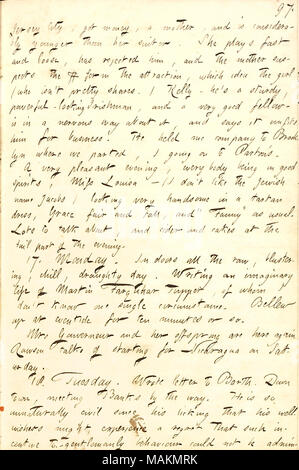 97.
Jersey City, got money, a mother, and is considera-
bly younger than her suitor. She plays fast
and loose, has rejected him, and the mother sus-
pects the in the attraction, which idea the girl
(who isn't pretty) shares. Kelly he's a sturdy,
powerful-looking Irishman, and a very good fellow-
is in a nervous way about it and says it unfits
him for business. He held me company to Brook
lyn where we parted, I going on to Parton's.
A very pleasant evening, everybody being in good
spirits, Miss Louisa (I don't like the Jewish
name Jacobs) looking very handsome in a tartan
dress, Grace fair and tall, and "Fanny" as usual.
Lots to talk about, and cider and cakes at the
tail part of the evening.
17. Monday. In doors all the raw, bluster-
ing, chill, draughty day. Writing an imaginary
life of Martin Farquhar Tupper, of whom
I don't know one single circumstance. Bellew
up at westide for ten minutes or so.
Mrs Gouverneur and her offspring are here again
Rawson talks of starting for Nicaragua on Sat-
urday.
18. Tuesday. Wrote letter to Barth. Down
town, meeting Banks by the way. He is so
unnaturally civil since his licking that his well
wishers might experience a regret that such in-
centive to gentlemanly behaviour could not be admin-
alamy
Image ID: MAKMRK
www.alamy.com